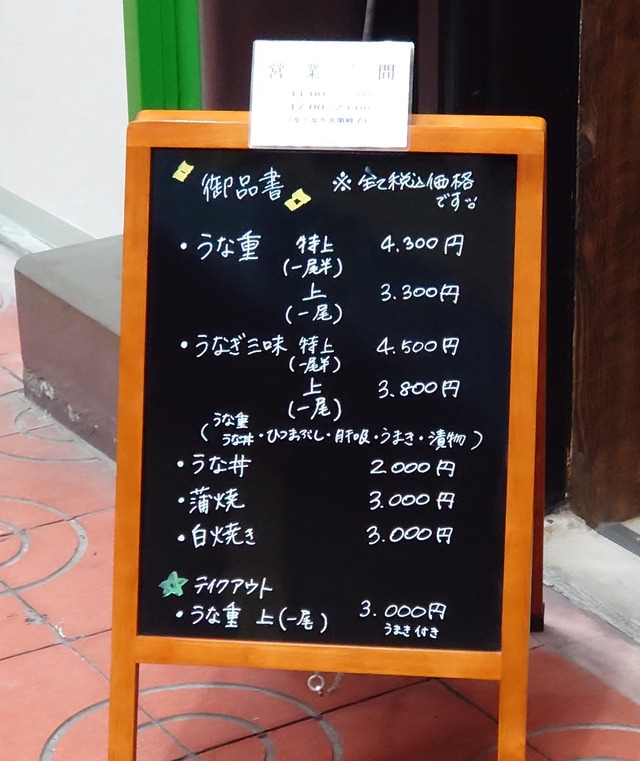 営業 間
11:00
17:00-23:00
(なくなり次第終了)
御品書
※全て税込価格
です
・うな重 特上 4.300円
(一尾半)
上 3.300円
(一尾)
・うなぎ三味 特上 4.500円
(一尾半)
上 3.800円
(一尾)
うな重
(うな丼・ひつまぶし・肝吸・うまき・漬物)
・うな丼 2.000円
・蒲焼 3.000円
・白焼き 3.000円
テイクアウト
・うな重 上(一尾) 3.000円
うまき付き